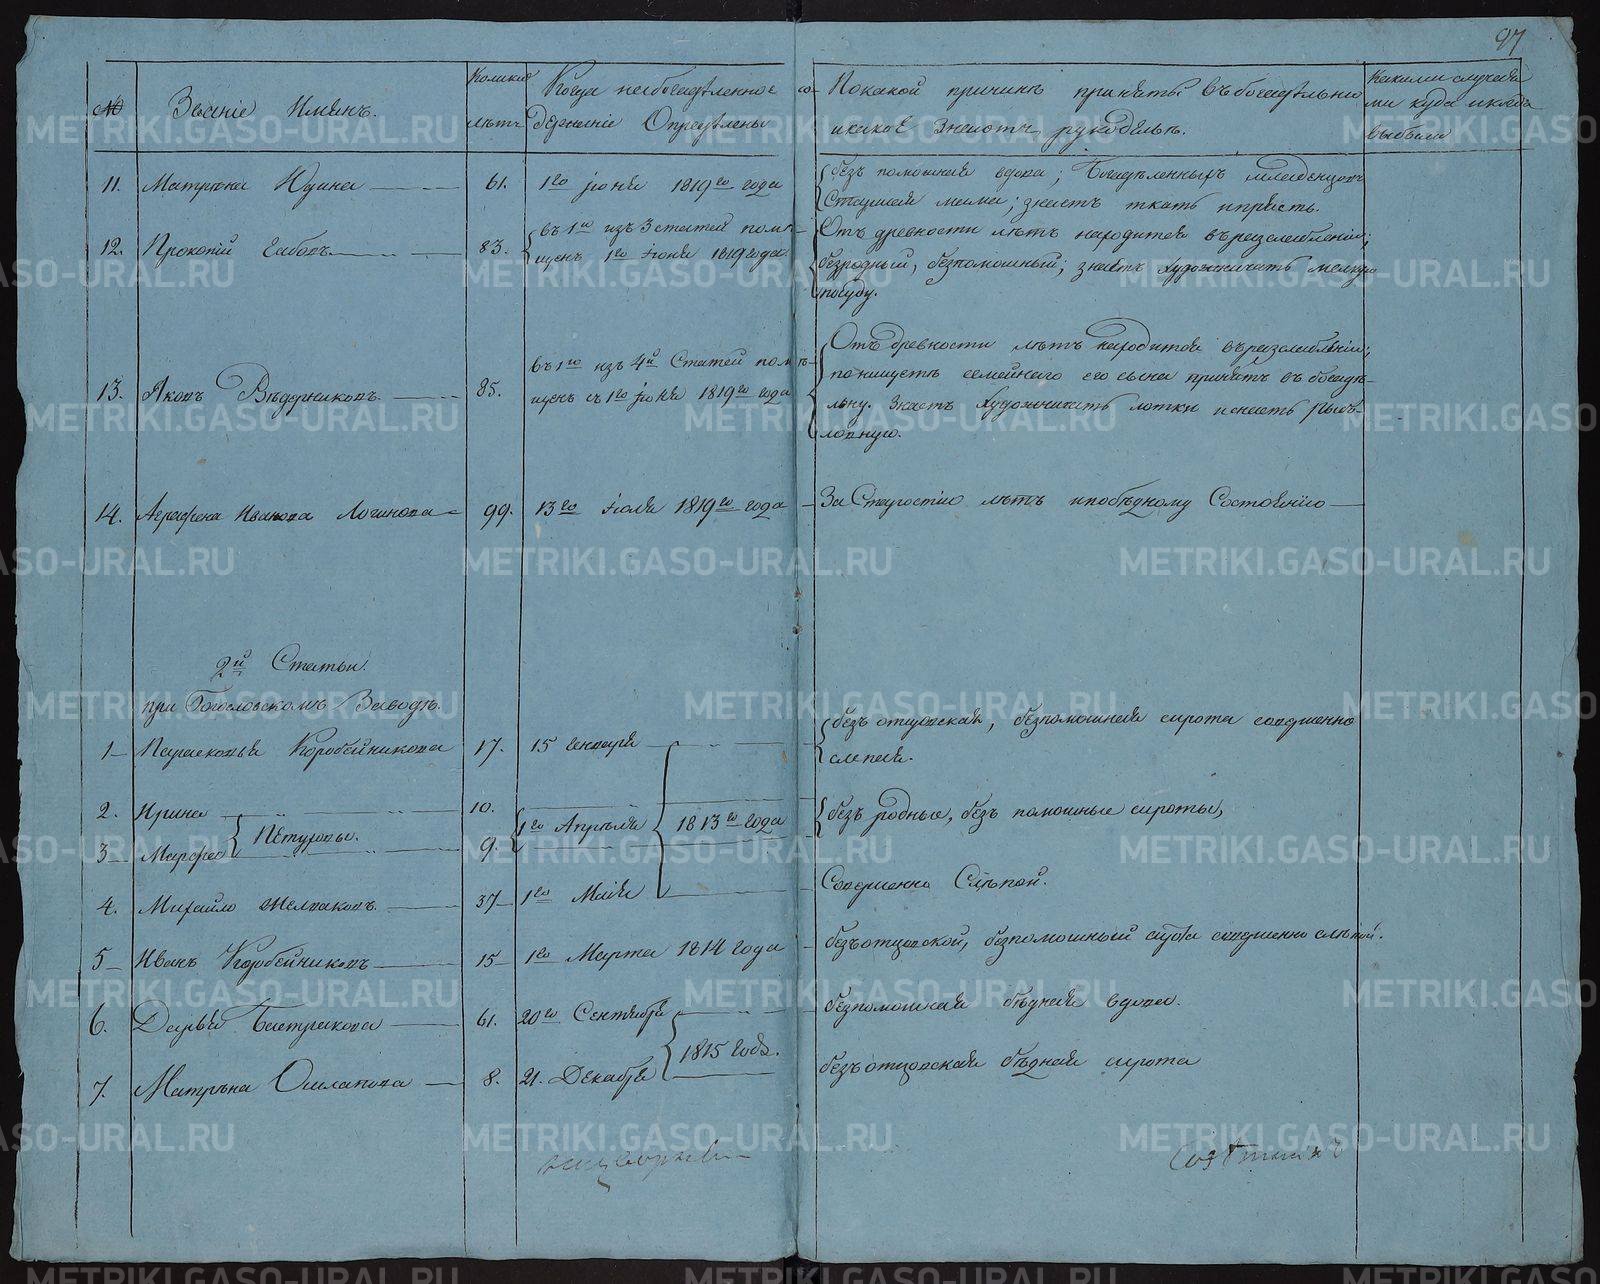 97
№
Званіе Имянъ.
Колико
лѣтъ
Когда на богадѣленное со-
держаніе Опредѣлены
По какой причинѣ приняты въ богадѣльню
и какое знаютъ рукодѣлье.
Какими случая
ми куда и когда
выбыли
11. Матрена Юдина 61. 1го іюня 1819го года
безъ помошная вдова; Богадѣленныхъ младенцовъ
Старшая мама; знаетъ ткать и прясть.
12. Прокопій Габовъ 83. въ 1ю изъ 3 статей помѣ-
щенъ 1го іюня 1819 года
Отъ древности лѣтъ находится въ разслабленіи;
безродный, безпомошный; знаетъ художничать мелкую
посуду.
13. Яковъ Вѣдерниковъ 85. въ 1ю изъ 4й Статей помѣ-
щенъ съ 1го іюня 1819го года
Отъ древности лѣтъ находится въ разслабленіи;
по нищетѣ семейнаго его сына принятъ въ богадѣ-
льну. Знаетъ художничать лотки и снасть рыбо-
ловную.
14. Аграфена Иванова Логинова 99. 13го іюля 1819го года
За Старостію лѣтъ и по бѣдному Состоянію
2й Статьи
при Богословскомъ Заводѣ.
1 Парасковья Коробейникова 17. 15 Генваря
безъ отцовская, безпомошная сирота совершенно
слепая.
2. Ирина 10.
Петуховы. 1го Апрѣля 1813го года
безъ родные, безъ помошные сироты,
3 Марфа 9.
4. Михайло Желваковъ 37 1го Майя
Совершенно Слѣпой.
5 Иванъ Коробейниковъ 15 1го Марта 1814 года
безъотцовской, безпомошный сирота совершенно слѣпой.
6. Дарья Бастракова 61. 20го Сентября
безпомошная бѣдная вдова.
1815 года.
7. Матрена Ошлапова 8. 21. Декабря
безъ отцовская бѣдная сирота
METRIKI.GASO-URAL.RU